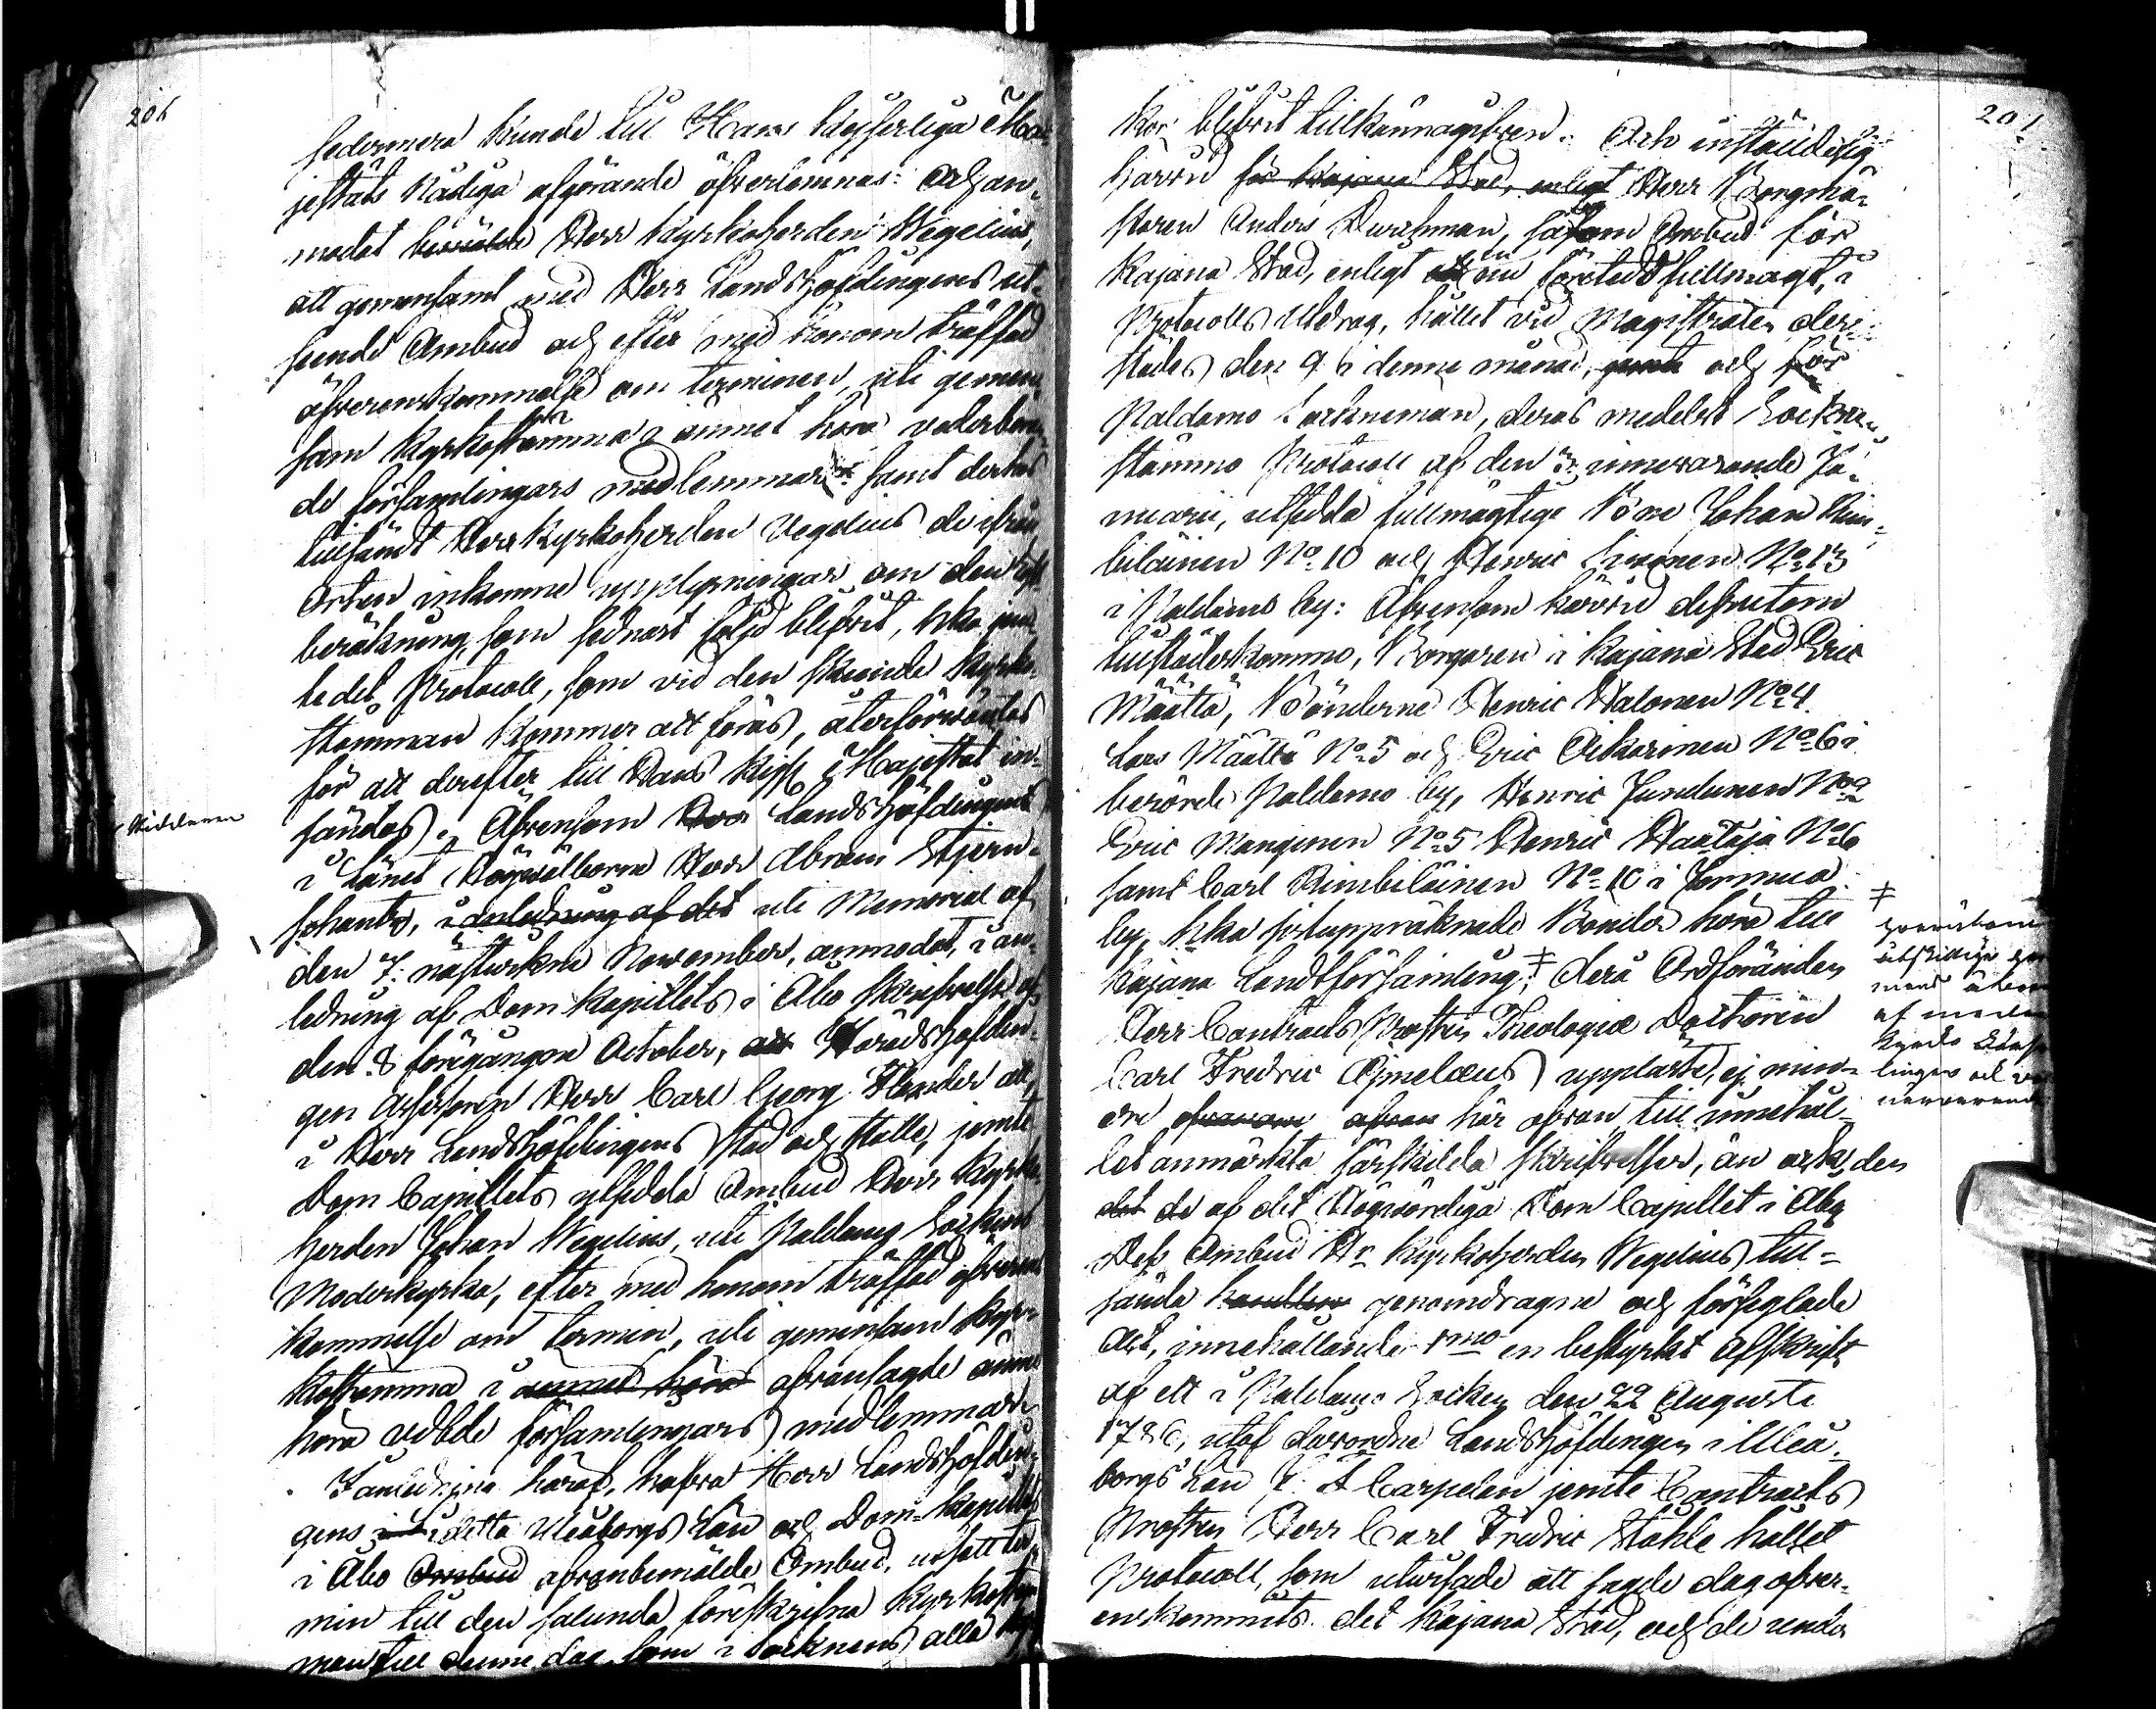 206
sedermera kunde till Hans Kejserliga Ma-
jestäts Nådiga afgörande öfverlemnas: Och an-
modat berörde Herr Kyrkoherden Wegelius,
att gemensamt med Herr Landshöfdingens ut-
seende Ombud och efter med honom träffad
öfverenskommelse om terminen, uti gemen-
sam Kyrkostämma i ämnet höra vederböran-
de församlingars medlemmar samt dertas
tillsändt Herr Kyrkoherden Wegelius de ifrån
Orten inkomne upplysningar om den
beräkning, som sednast följd blifvit, hka jem-
te det Protocoll, som vid den skeende Kyrko-
stämman kommer att föras, återförväntas
för att derefter till Hans Kejs. Majestät in-
sändas. Äfvensom Herr Landshöfdingen
Riddaren
i Länet Högvälborne Herr Abram Stjern-
schantz, i anledning af det uti Memorial af
den 7: nästvikne November, anmodat, i an-
ledning af Dom Kapitlets i Åbo skrifvelse af
den 8 föregångne October, att Häradshöfdin-
gen Assessoren Herr Carl Georg att
i Herr Landshöfdingens stad och ställe, jemte
Dom Capitlets utsedda Ombud Herr Kyrko-
herden Johan Wegelius, uti Paldamo Sockens
Moderkyrka, efter med honom träffad öfverens-
kommelse om termin, uti gemensam Kyr-
kostämma i ämnet höra ofvansagde ämne
höra vedbde församlingars medlemmar.
I anledning häraf, hafva Herr Landshöfdin-
gens i detta Uleåborgs Län och Dom-Kapitlets
i Åbo Ombud ofvanbemälde Ombud, utsatt ter-
min till den sålunda föreskrifna Kyrkostäm-
man till denne dag, som i Socknens alla

201
kor blifvit tillkännagifven: Och inställde sig
härvid för Kajana Stad, enligt Herr Borgmä-
staren Anders Durchman, såsom Ombud för
Kajana Stad, enligt en företedd fullmagt, i
Protocolls Utdrag, hållet vid Magistraten der-
städes den 9 i denne månad, jemte och för
Paldamo Sockneman, deras medelst Sockne-
stämmo Protocoll af den 3 innevarande Ja-
nuarii, utsedda fullmägtige Bönn Johan Kim-
biläinen No 10 och Henric No 13
i Paldamo by: Äfvensom härvid dessutom
tillstädeskommo, Borgaren i Kajana Stad Eric
Määttä, Bönderne Henric Halonen No 4.
Lars Määttä No 5 och Eric Aikarinen No 6 i
berörde Paldamo by, Henric Jundunen No 2
Eric Manginen No 5 Henric Haataja No 6
samt Carl Kimbiläinen No 10 i Jormua
by, hka sistuppräknade Bönder höra till
Kajana Landtförsamling; ‡ dera Ordföranden
‡
utskillige
af
Kyrko
linger och
närvarende
Herr Contracts Prosten Theologiæ Doctoren
Carl Fredric Ajmelæus uppläste, ej min-
dre ofvanom ofvan här ofvan till innehål-
let anmärkta särskildta skrifvelser, än ock, den
det de af det Högvördiga Dom Capitlet i Åbo
Dess Ombud Hr Kyrkoherden Wegelius till-
sända handlin genomdragne och förseglade
Act, innehållande 1mo en bestyrkt Afskrift
af ett i Paldamo Socken den 22 Augusti
1786, utaf davarande Landshöfdingen i Uleå-
borgs Län Carpelan jemte Contracts
Prosten Herr Carl Fredric Ståhle hållet
Protocoll, som utvisade att sagde dag öfver-
enskommits det Kajana Stad, och de under